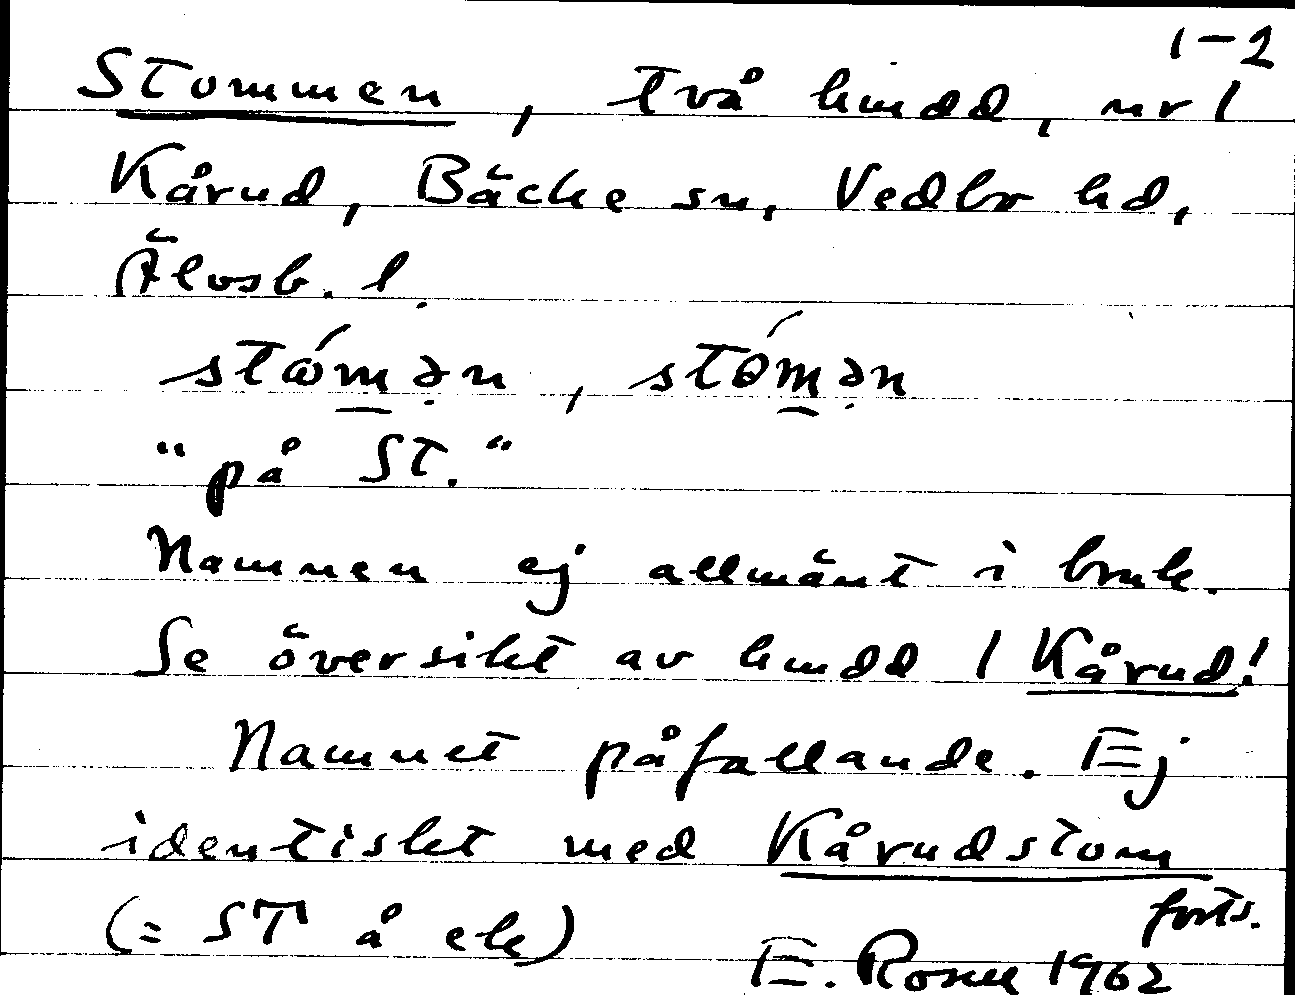 1-2
Stommen, två hmdd, nr 1
Kårud, Bäcke sn, Vedbo hd,
Älvsb. l.
stǿmən, stómən
"på St."
Namnen ej allmänt i bruk.
Se översikt av hmdd 1 Kårud!
Namnet påfallande. Ej
identiskt med Kårudstom
(= ST å ek)
forts.
E. Rosell 1962